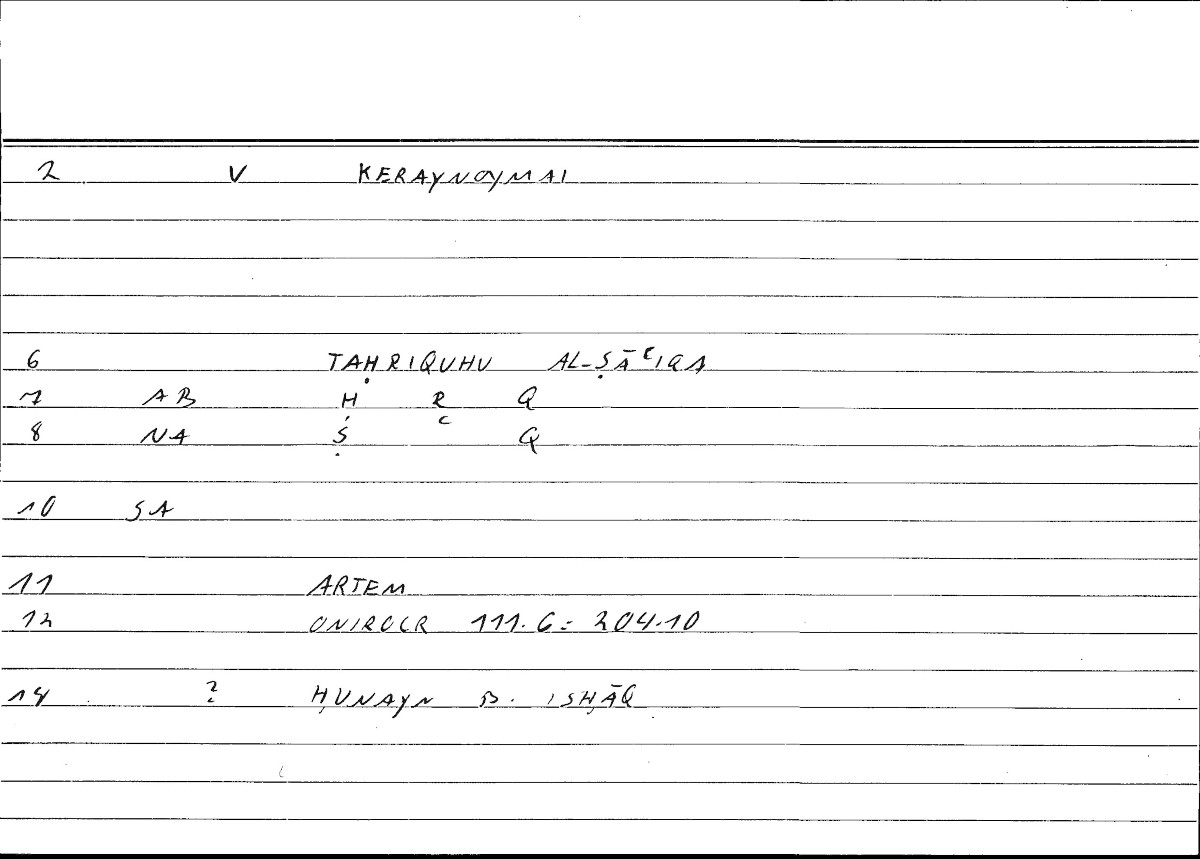 2 V KERAYNOYMAI
6 TAḤRIQUHU AL-ṢĀʿIQA
7 AB Ḥ R Q
8 NA Ṣ ʿ Q
10 SA
11 ARTEM
12 ONIROCR 111.6 = 204.10
14 ? ḤUNAYN B. ISḤĀQ